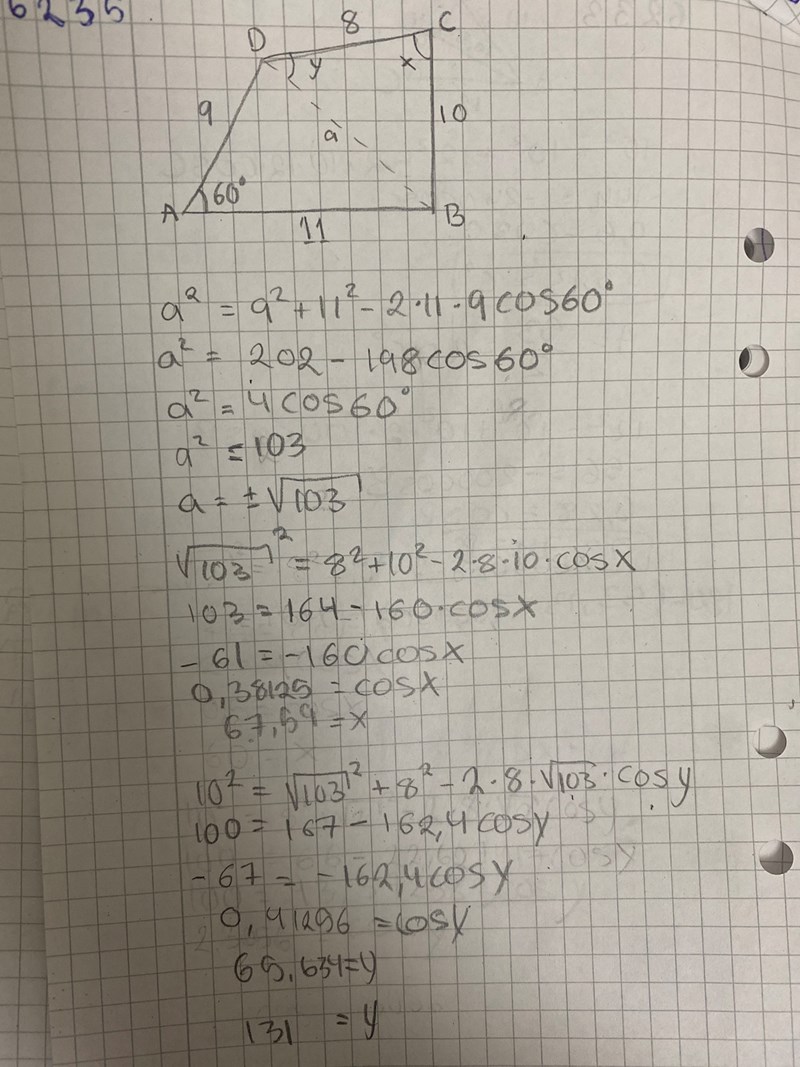 6235
8
D
C
y
x
9
a
10
60°
A
B
11
a² = 9² + 11² - 2·11·9 cos60°
a² = 202 - 198 cos60°
a² = 4 cos60°
a² = 103
a = ±√103
√103² = 8² + 10² - 2·8·10·cosx
103 = 164 - 160·cosx
-61 = -160 cosx
0,38125 = cosx
67,59 = x
10² = √103² + 8² - 2·8·√103·cosy
100 = 167 - 162,4 cosy
-67 = -162,4 cosy
0,41296 = cosy
65,634 = y
131 = y